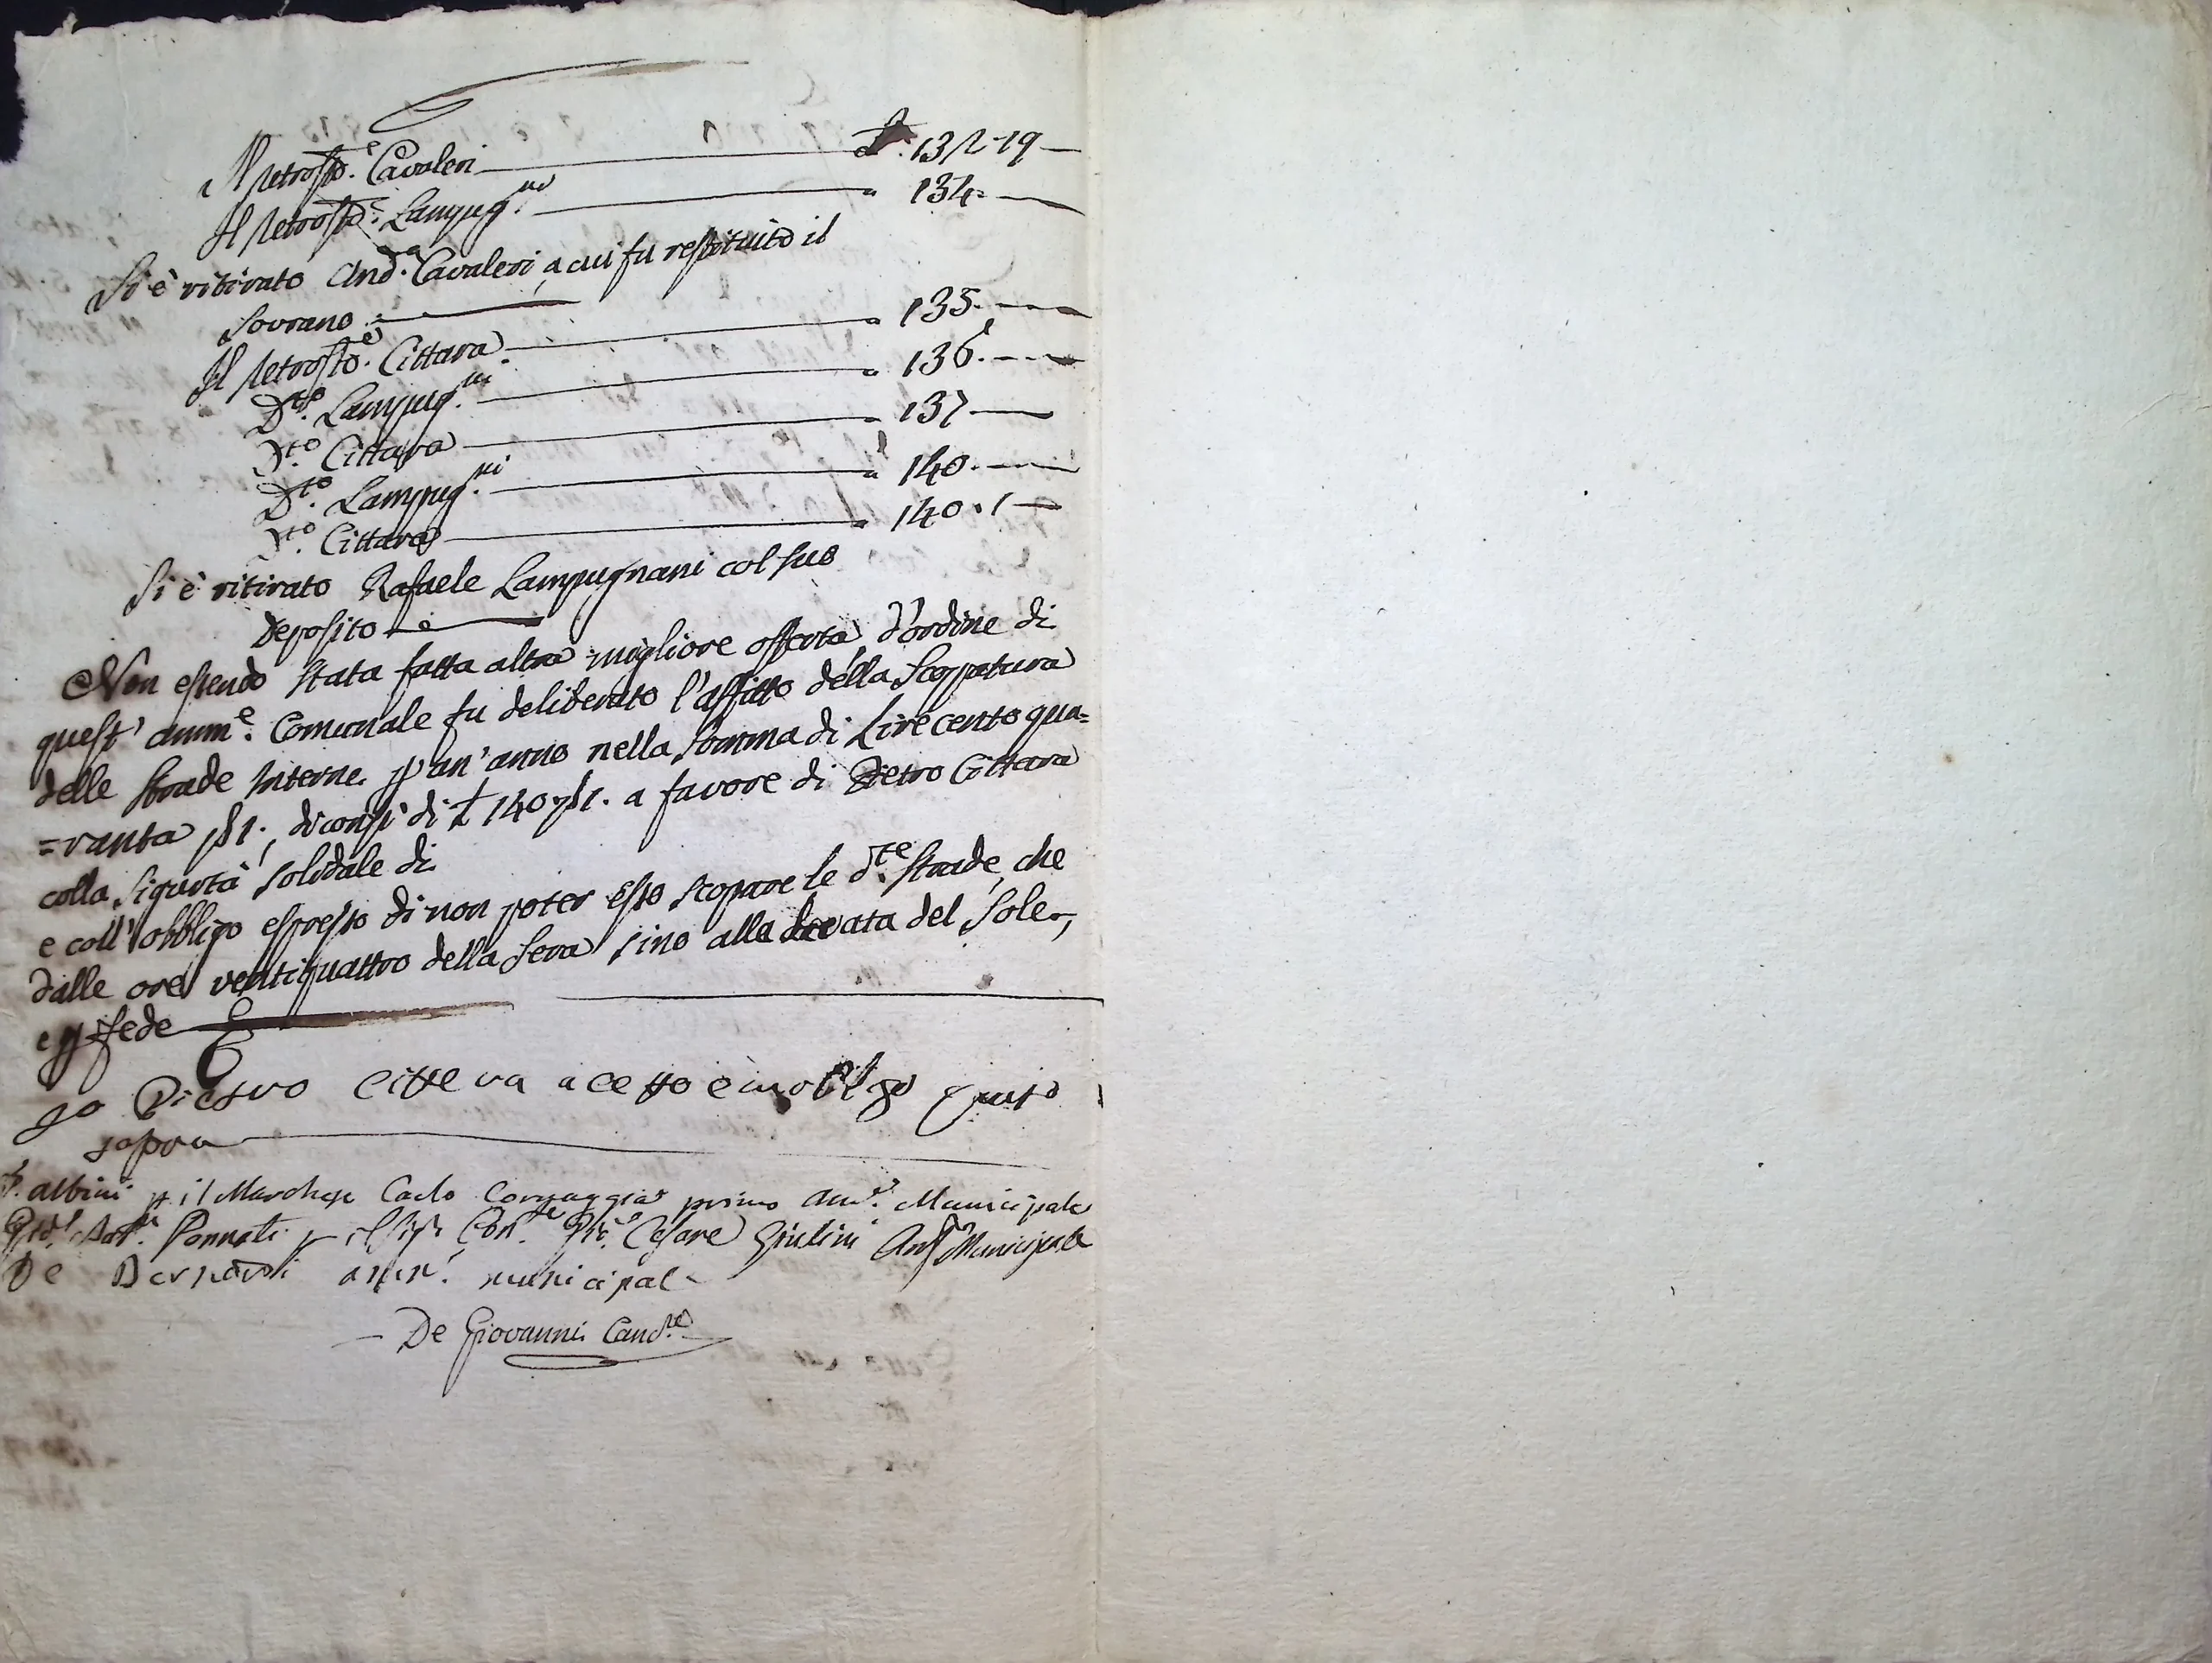 Il petrosto.e Cavaleri £. 132-19
Il petrosto.e Lampug.ni " 134-
Si è ritirato And.a Cavaleri, a cui fu restituito il
Sovrano
Il petrosto.e Cittara " 135.
D.to Lampug.ni " 136.
D.to Cittara " 137
D.to Lampug.ni " 140.
D.to Cittara " 140.1
Si è ritirato Rafaele Lampugnani col suo
Deposito
Non essendo stata fatta altra migliore offerta, d'ordine di
quest' amm.e Comunale fu deliberato l'affitto della Scoppatura
delle Strade Interne p un' anno nella Somma di Lire cento qua=
=ranta s 1., diconsi di £ 140 s 1. a favore di Pietro Cittara
colla Sigurtà solidale di
e coll' obbligo espresso di non poter esso scopare le d.te Strade, che
dalle ore ventiquattro della Sera sino alla levata del Sole,
e p fede
Io Pietro Citteva acetto e mobligo quito
sopra
albini p il Marchese Carlo primo Am.e Municipale
Gio. Bat.a p il Sig.r Con.te Cesare Giulini Am.e Municipale
De Bernardi amm. municipale
De Giovanni Canc.re